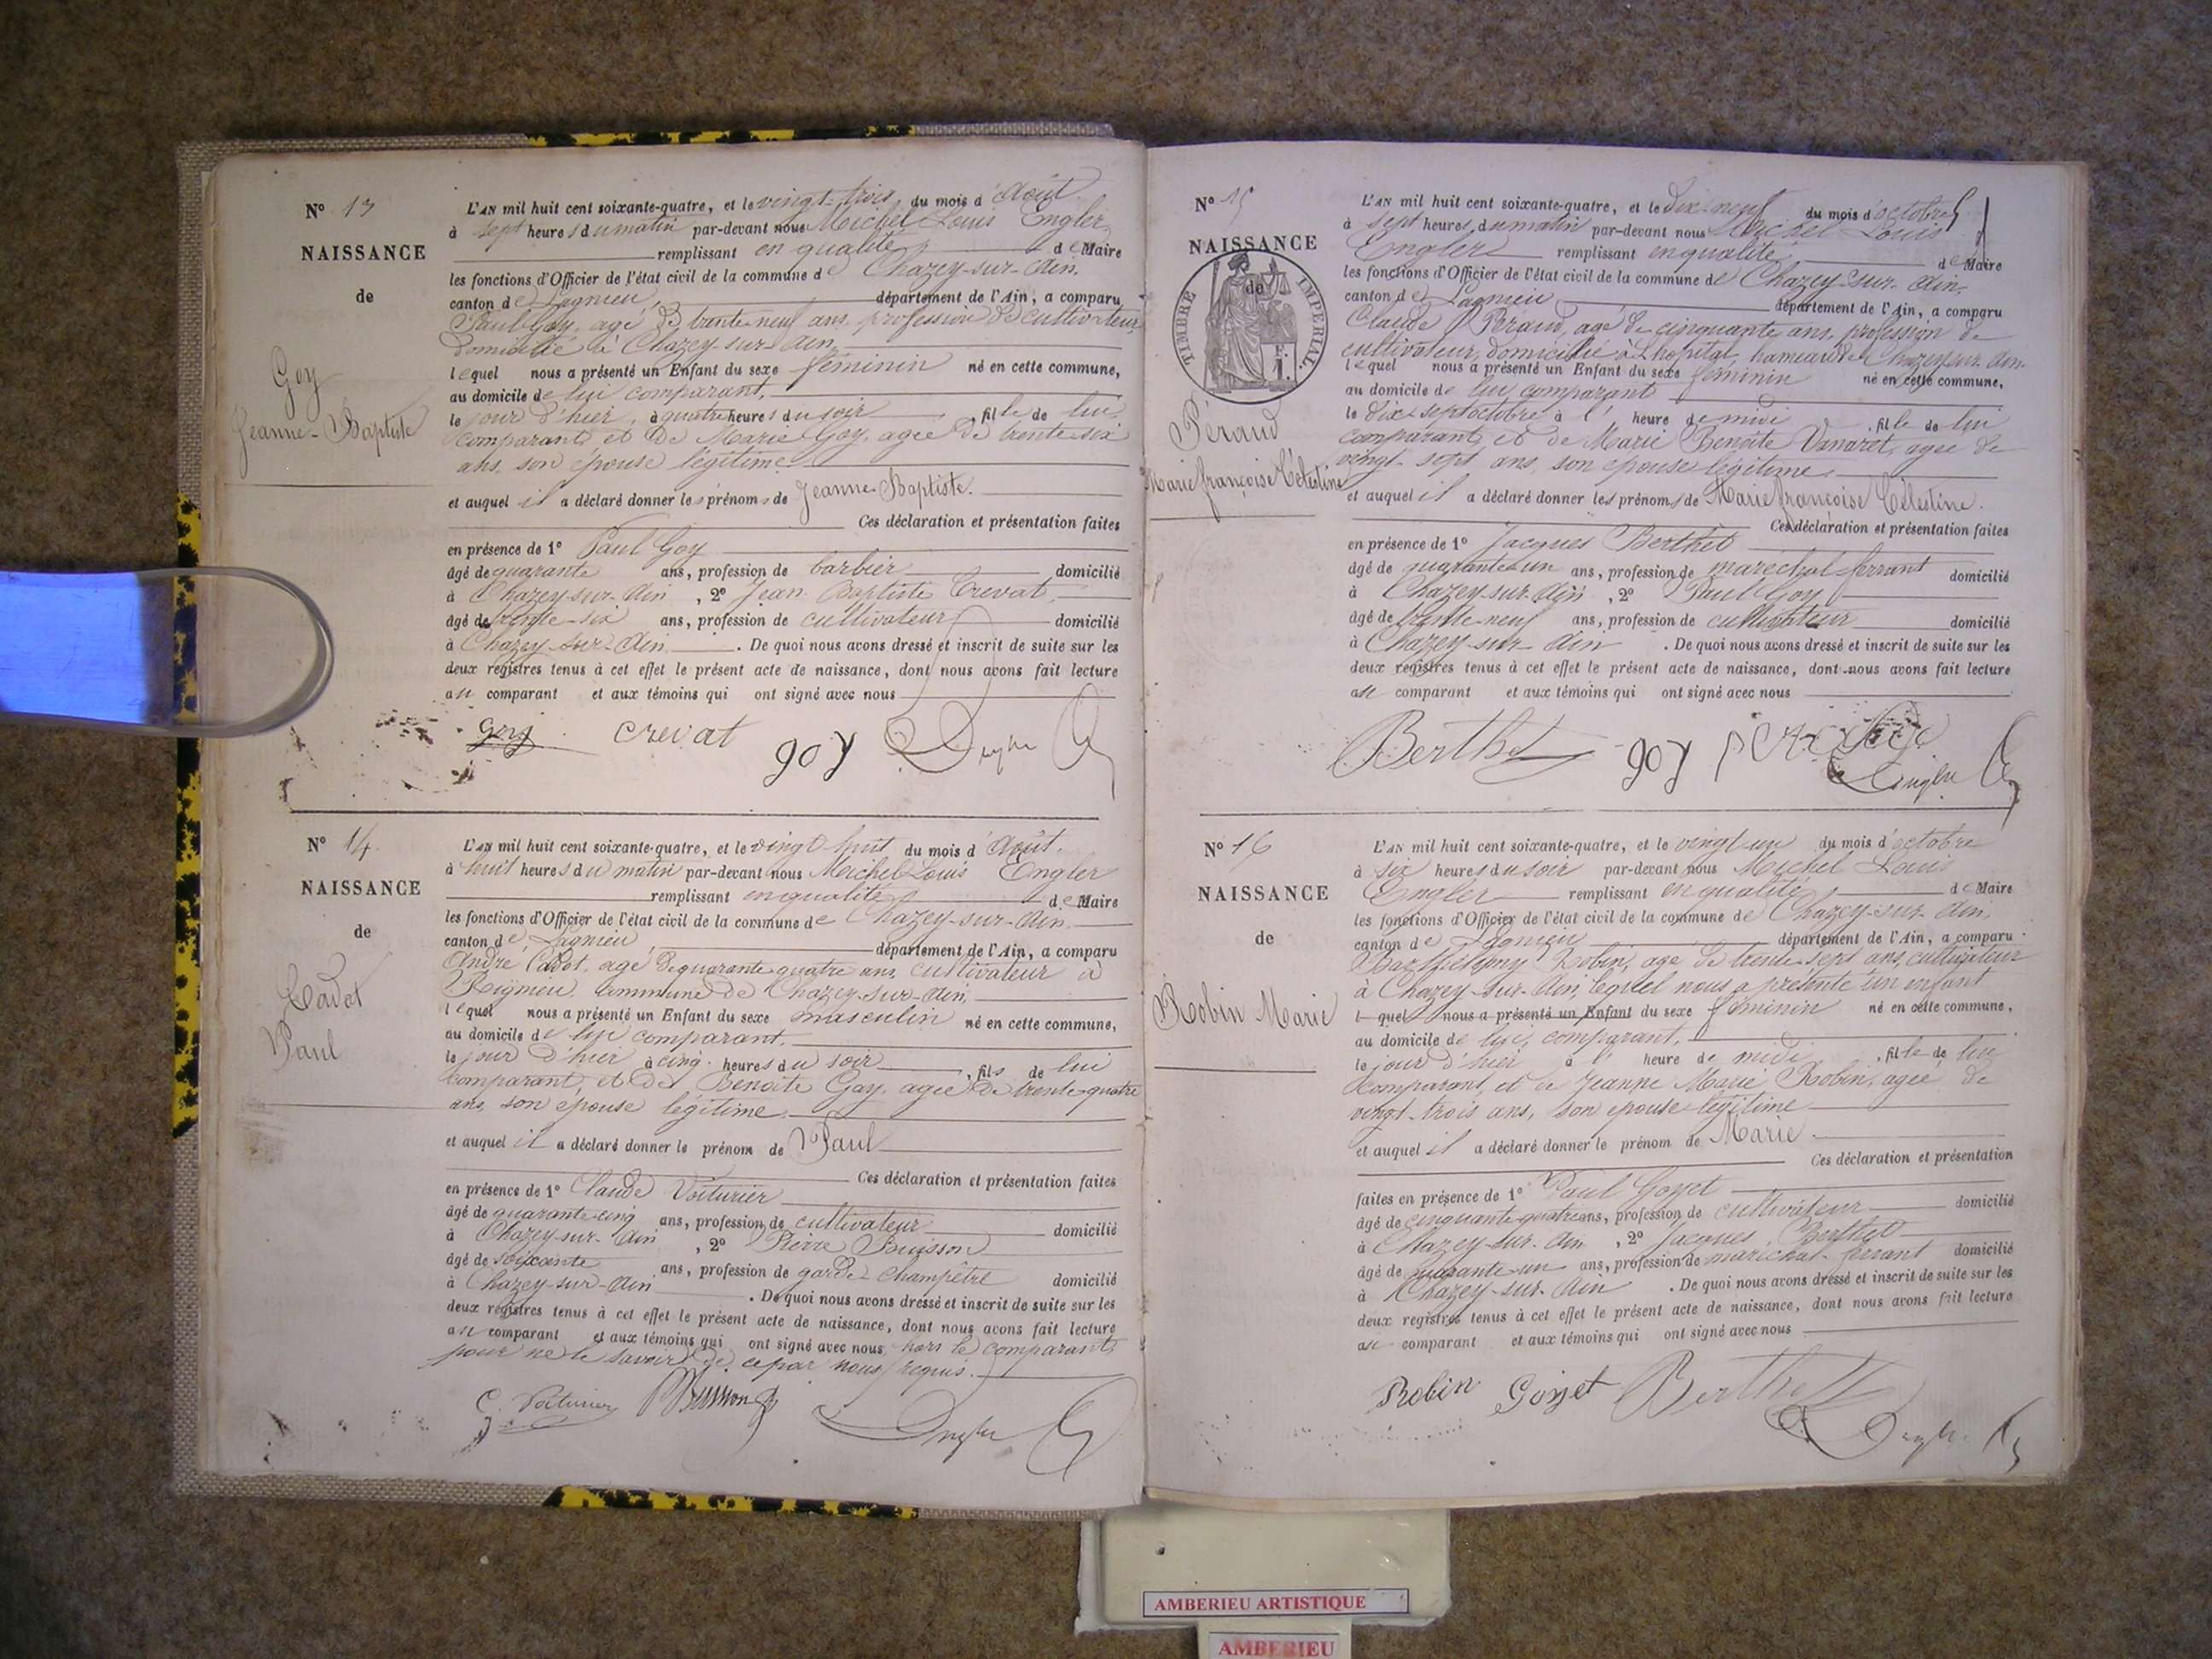 N° 13
NAISSANCE
de
Goy
Jeanne-Baptiste
L'AN mil huit cent soixante-quatre, et le vingt-trois du mois d'Août
à sept heures du matin par-devant nous Michel Louis Engler,
remplissant en qualité de Maire
les fonctions d'Officier de l'état civil de la commune de Chazey-sur-Ain,
canton de Lagnieu, département de l'Ain, a comparu
Paul Goy, agé de trente-neuf ans, profession de cultivateur
domicilié à Chazey-sur-Ain,
lequel nous a présenté un Enfant du sexe féminin né en cette commune,
au domicile de lui comparant,
le jour d'hier, à quatre heures du soir, fille de lui
comparant et de Marie Goy, agée de trente-six
ans, son épouse légitime
et auquel il a déclaré donner les prénoms de Jeanne-Baptiste.
Ces déclaration et présentation faites
en présence de 1° Paul Goy
âgé de quarante ans, profession de barbier domicilié
à Chazey-sur-Ain, 2° Jean-Baptiste Crevat,
âgé de vingt-six ans, profession de cultivateur domicilié
à Chazey-sur-Ain. De quoi nous avons dressé et inscrit de suite sur les
deux registres tenus à cet effet le présent acte de naissance, dont nous avons fait lecture
au comparant et aux témoins qui ont signé avec nous
Goy crevat goy Engler
N° 14
NAISSANCE
de
Cadot
Paul
L'AN mil huit cent soixante-quatre, et le vingt-huit du mois d'Août.
à huit heures du matin par-devant nous Michel Louis Engler
remplissant en qualité de Maire
les fonctions d'Officier de l'état civil de la commune de Chazey-sur-Ain
canton de Lagnieu, département de l'Ain, a comparu
André Cadot, agé de quarante-quatre ans, cultivateur à
Rignieu, commune de Chazey-sur-Ain,
lequel nous a présenté un Enfant du sexe masculin né en cette commune,
au domicile de lui comparant,
le jour d'hier à cinq heures du soir, fils de lui
comparant, et de Benoîte Gay, agée de trente-quatre
ans, son épouse légitime,
et auquel il a déclaré donner le prénom de Paul
Ces déclaration et présentation faites
en présence de 1° Claude Voiturier
âgé de quarante-cinq ans, profession de cultivateur domicilié
à Chazey-sur-Ain, 2° Pierre Buisson
âgé de soixante ans, profession de garde-champêtre domicilié
à Chazey-sur-Ain. De quoi nous avons dressé et inscrit de suite sur les
deux registres tenus à cet effet le présent acte de naissance, dont nous avons fait lecture
au comparant et aux témoins qui ont signé avec nous, hors le comparant
pour ne le savoir de ce par nous requis.
C. Voiturier PBuisson Engler
N° 15
NAISSANCE
de
TIMBRE IMPÉRIAL
Péraud
Marie françoise Célestine
L'AN mil huit cent soixante-quatre, et le dix-neuf du mois d'octobre
à sept heures du matin par-devant nous Michel Louis
Engler remplissant en qualité de Maire
les fonctions d'Officier de l'état civil de la commune de Chazey-sur-Ain,
canton de Lagnieu département de l'Ain, a comparu
Claude Péraud, agé de cinquante ans, profession de
cultivateur, domicilié à L'hopital, hameau de Chazey-sur-Ain.
lequel nous a présenté un Enfant du sexe féminin né en cette commune,
au domicile de lui comparant
le dix-sept octobre à l'heure de midi, fille de lui
comparant, et de Marie Benoîte Vanaret, agée de
vingt-sept ans, son épouse légitime,
et auquel il a déclaré donner les prénoms de Marie françoise Célestine.
Ces déclaration et présentation faites
en présence de 1° Jacques Berthet
âgé de quarante-un ans, profession de maréchal-ferrant domicilié
à Chazey-sur-Ain, 2° Paul Goy,
âgé de trente-neuf ans, profession de cultivateur domicilié
à Chazey-sur-Ain. De quoi nous avons dressé et inscrit de suite sur les
deux registres tenus à cet effet le présent acte de naissance, dont nous avons fait lecture
au comparant et aux témoins qui ont signé avec nous
Berthet goy Engler
N° 16
NAISSANCE
de
Robin Marie
L'AN mil huit cent soixante-quatre, et le vingt-un du mois d'octobre
à six heures du soir par-devant nous Michel Louis
Engler remplissant en qualité de Maire
les fonctions d'Officier de l'état civil de la commune de Chazey-sur-Ain,
canton de Lagnieu département de l'Ain, a comparu
Barthélemy Robin, agé de trente-sept ans, cultivateur
à Chazey-sur-Ain, lequel nous a présenté un enfant
l quel nous a présenté un Enfant du sexe féminin né en cette commune,
au domicile de lui comparant,
le jour d'hier à l'heure de midi, fille de lui
comparant, et de Jeanne Marie Robin, agée de
vingt-trois ans, son épouse légitime
et auquel il a déclaré donner le prénom de Marie.
Ces déclaration et présentation
faites en présence de 1° Paul Goyet
âgé de cinquante-quatre ans, profession de cultivateur domicilié
à Chazey-sur-Ain, 2° Jacques Berthet
âgé de quarante-un ans, profession de maréchal-ferrant domicilié
à Chazey-sur-Ain. De quoi nous avons dressé et inscrit de suite sur les
deux registres tenus à cet effet le présent acte de naissance, dont nous avons fait lecture
au comparant et aux témoins qui ont signé avec nous
Robin Goyet Berthet Engler
AMBERIEU ARTISTIQUE
AMBERIEU